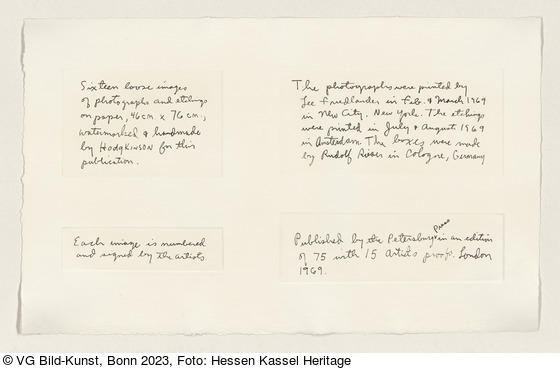 Sixteen loose images
of photographs and etchings
on paper, 46cm. x 76 cm.,
watermarked & handmade
by Hodgkinson for this
publication.
Each image is numbered
and signed by the artists.
The photographs were printed by
Lee Friedlander in Feb. & March 1969
in New City. New York. The etchings
were printed in July & August 1969
in Amsterdam. The boxes were made
by Rudolf Rieser in Cologne, Germany
Published by the Petersburg Press in an edition
of 75 with 15 Artists proofs. London
1969.
© VG Bild-Kunst, Bonn 2023, Foto: Hessen Kassel Heritage